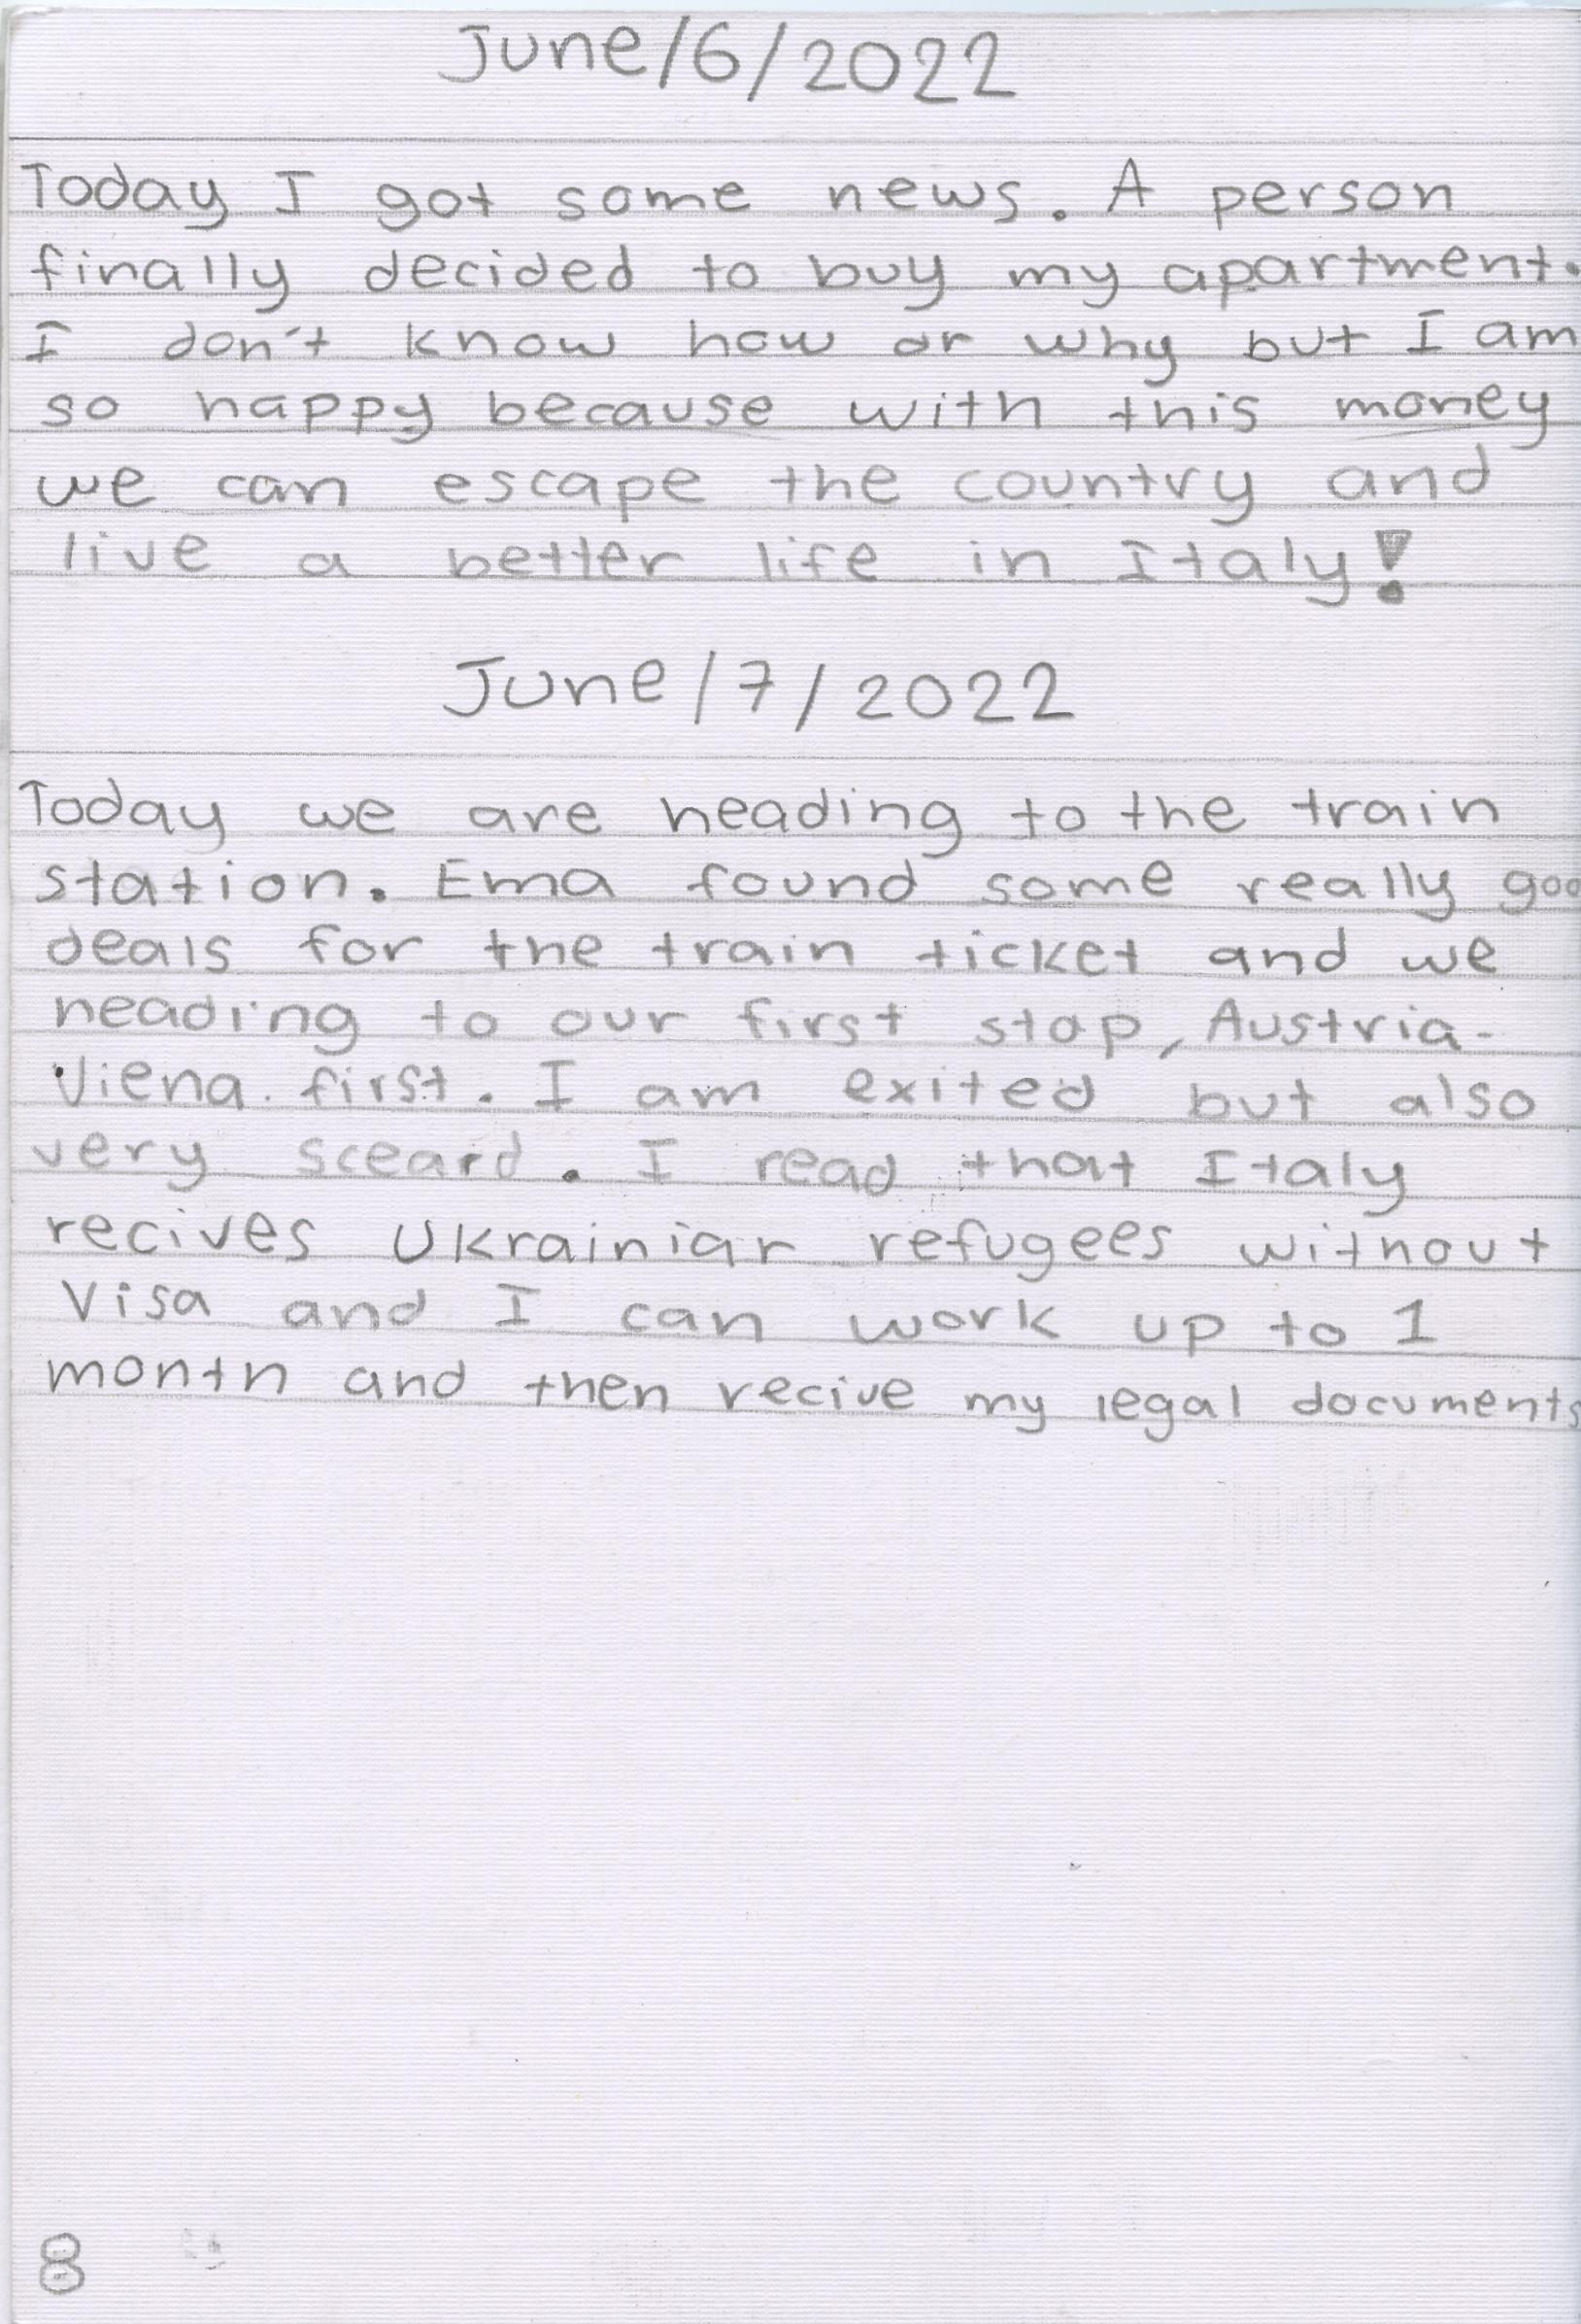 June/6/2022
Today I got some news. A person
finally decided to buy my apartment.
I don't know how or why but I am
so happy because with this money
we can escape the country and
live a better life in Italy!
June/7/2022
Today we are heading to the train
station. Ema found some really goo
deals for the train ticket and we
heading to our first stop, Austria-
Viena first. I am exited but also
very sceard. I read that Italy
recives Ukrainiar refugees without
Visa and I can work up to 1
month and then recive my legal documents
8